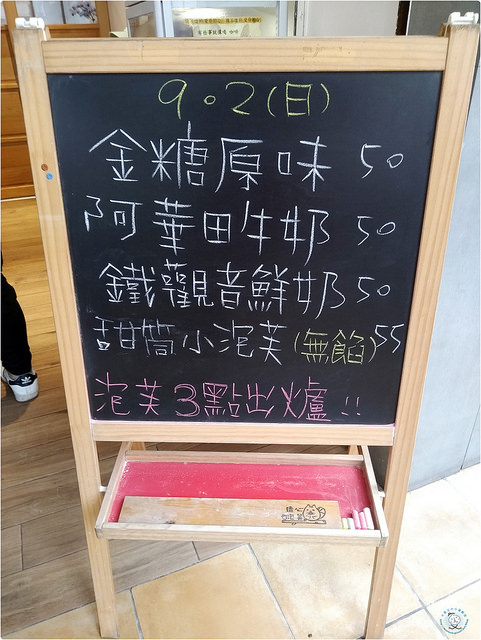 9.2(日)
金糖原味 50
阿華田牛奶 50
鐵觀音鮮奶 50
甜筒小泡芙(無餡) 55
泡芙3點出爐!!